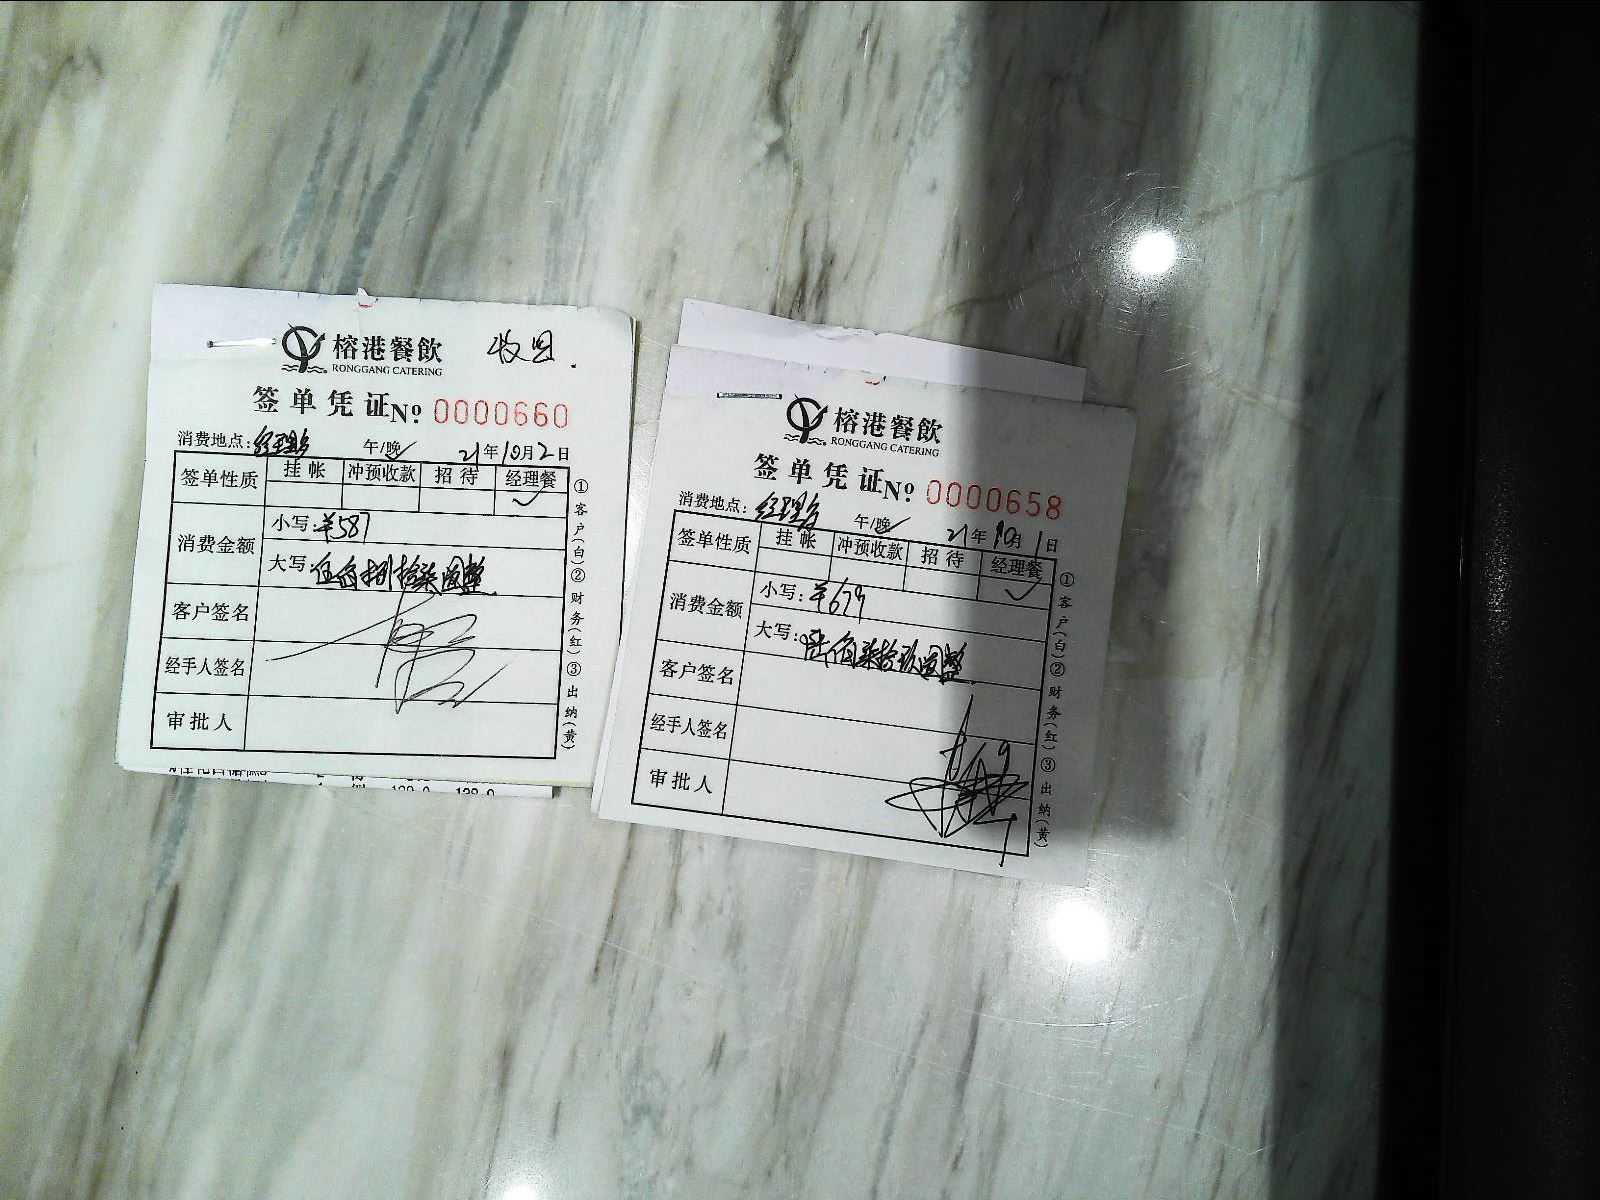 榕港餐飲
RONGGANG CATERING
签单凭证 No 0000660
消费地点: 午/晚 21年10月2日
签单性质 挂帐 冲预收款 招待 经理餐
消费金额 小写:¥587
大写:伍佰捌拾柒圆整
客户签名
经手人签名
审批人
①客户(白)②财务(红)③出纳(黄)
榕港餐飲
RONGGANG CATERING
签单凭证 No 0000658
消费地点: 午/晚 21年10月1日
签单性质 挂帐 冲预收款 招待 经理餐
消费金额 小写:¥679
大写:陆佰柒拾玖圆整
客户签名
经手人签名
审批人
①客户(白)②财务(红)③出纳(黄)